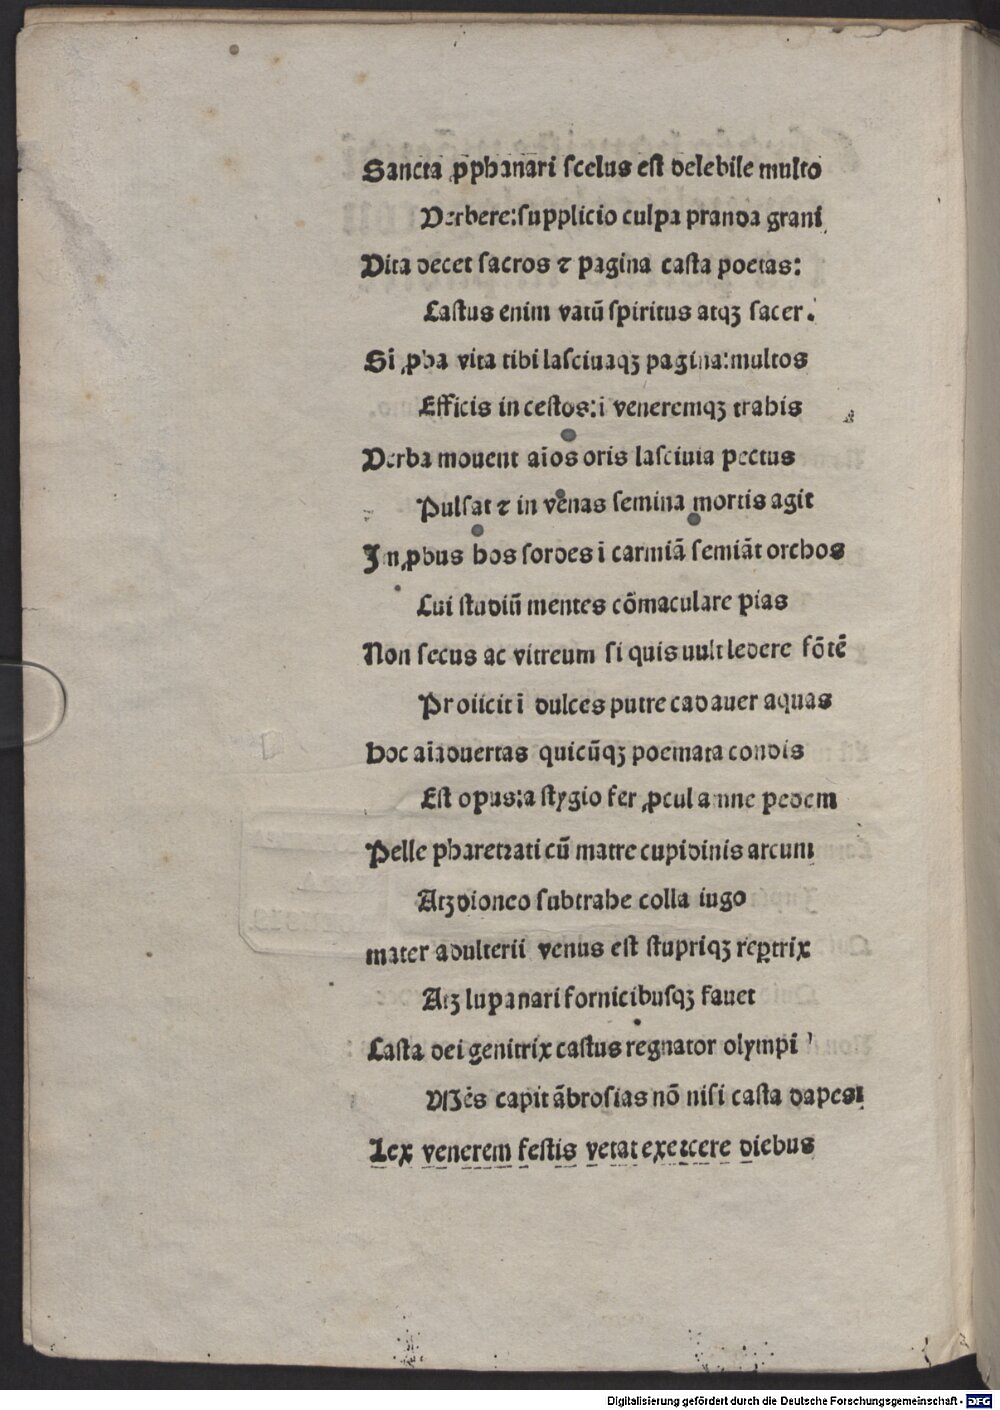 Sancta ꝓphanari scelus est delebile multo
Verbere:supplicio culpa pranda graui
Vita decet sacros ⁊ pagina casta poetas:
Castus enim vatū spiritus atqꝫ sacer.
Si ꝓba vita tibi lasciuaqꝫ pagina:multos
Efficis in cestos:i veneremqꝫ trahis
Verba mouent aīos oris lasciuia pectus
Pulsat ⁊ in venas semina mortis agit
Inꝓbus hos sordes i carmīā semīāt orchos
Cui studiū mentes cōmaculare pias
Non secus ac vitreum si quis uult ledere fōtē
Proiicit i dulces putre cadauer aquas
Hoc aīaduertas quicūqꝫ poemata condis
Est opus:a stygio fer ꝓcul amne pedem
Pelle pharetrati cū matre cupidinis arcum
Atꝫ dioneo subtrahe colla iugo
mater adulterii venus est stupriqꝫ reꝑtrix
Atꝫ lupanari fornicibusqꝫ fauet
Casta dei genitrix castus regnator olympi
Mēs capit ābrosias nō nisi casta dapes:
Lex venerem festis vetat exercere diebus
Digitalisierung gefördert durch die Deutsche Forschungsgemeinschaft - DFG